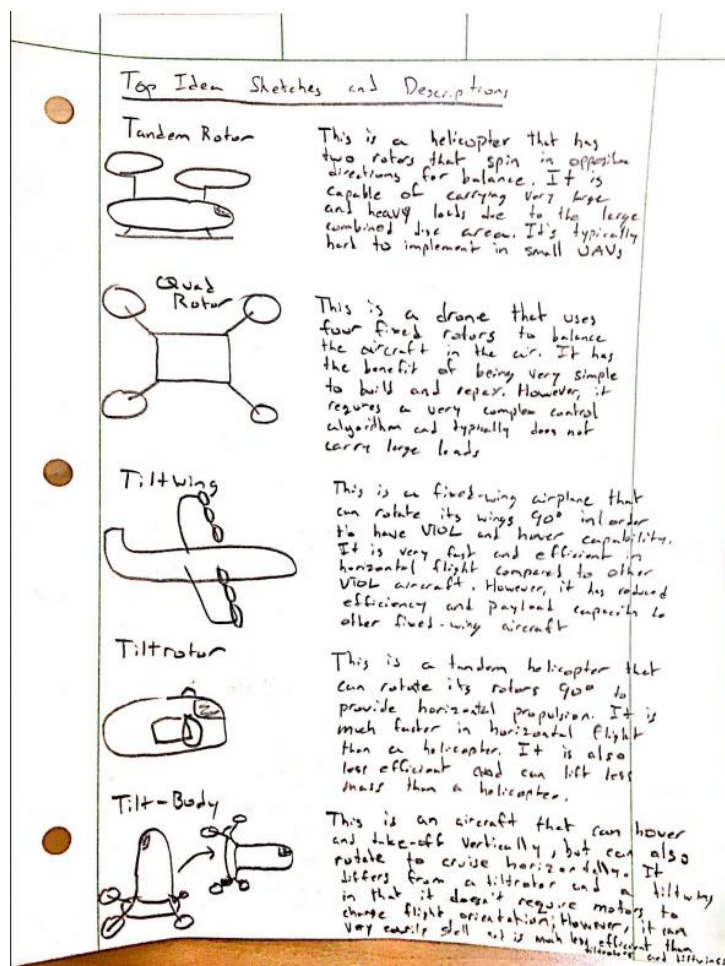 Top Idea Sketches and Descriptions
Tandem Rotor
This is a helicopter that has
two rotors that spin in opposite
directions for balance. It is
capable of carrying very large
and heavy loads due to the large
combined disc area. It's typically
hard to implement in small UAVs
Quad
Rotor
This is a drone that uses
four fixed rotors to balance
the aircraft in the air. It has
the benefit of being very simple
to build and repair. However, it
requires a very complex control
algorithm and typically does not
carry large loads
Tiltwing
This is a fixed-wing airplane that
can rotate its wings 90° in order
to have VTOL and hover capability.
It is very fast and efficient in
horizontal flight compared to other
VTOL aircraft. However, it has reduced
efficiency and payload capacity to
other fixed-wing aircraft
Tiltrotor
This is a tandem helicopter that
can rotate its rotors 90° to
provide horizontal propulsion. It is
much faster in horizontal flight
than a helicopter. It is also
less efficient and can lift less
mass than a helicopter.
Tilt-Body
This is an aircraft that can hover
and take-off vertically, but can also
rotate to cruise horizontally. It
differs from a tiltrotor and a tiltwing
in that it doesn't require motors to
change flight orientation; However, it can
very easily stall and is much less efficient than
tiltrotors and tiltwings